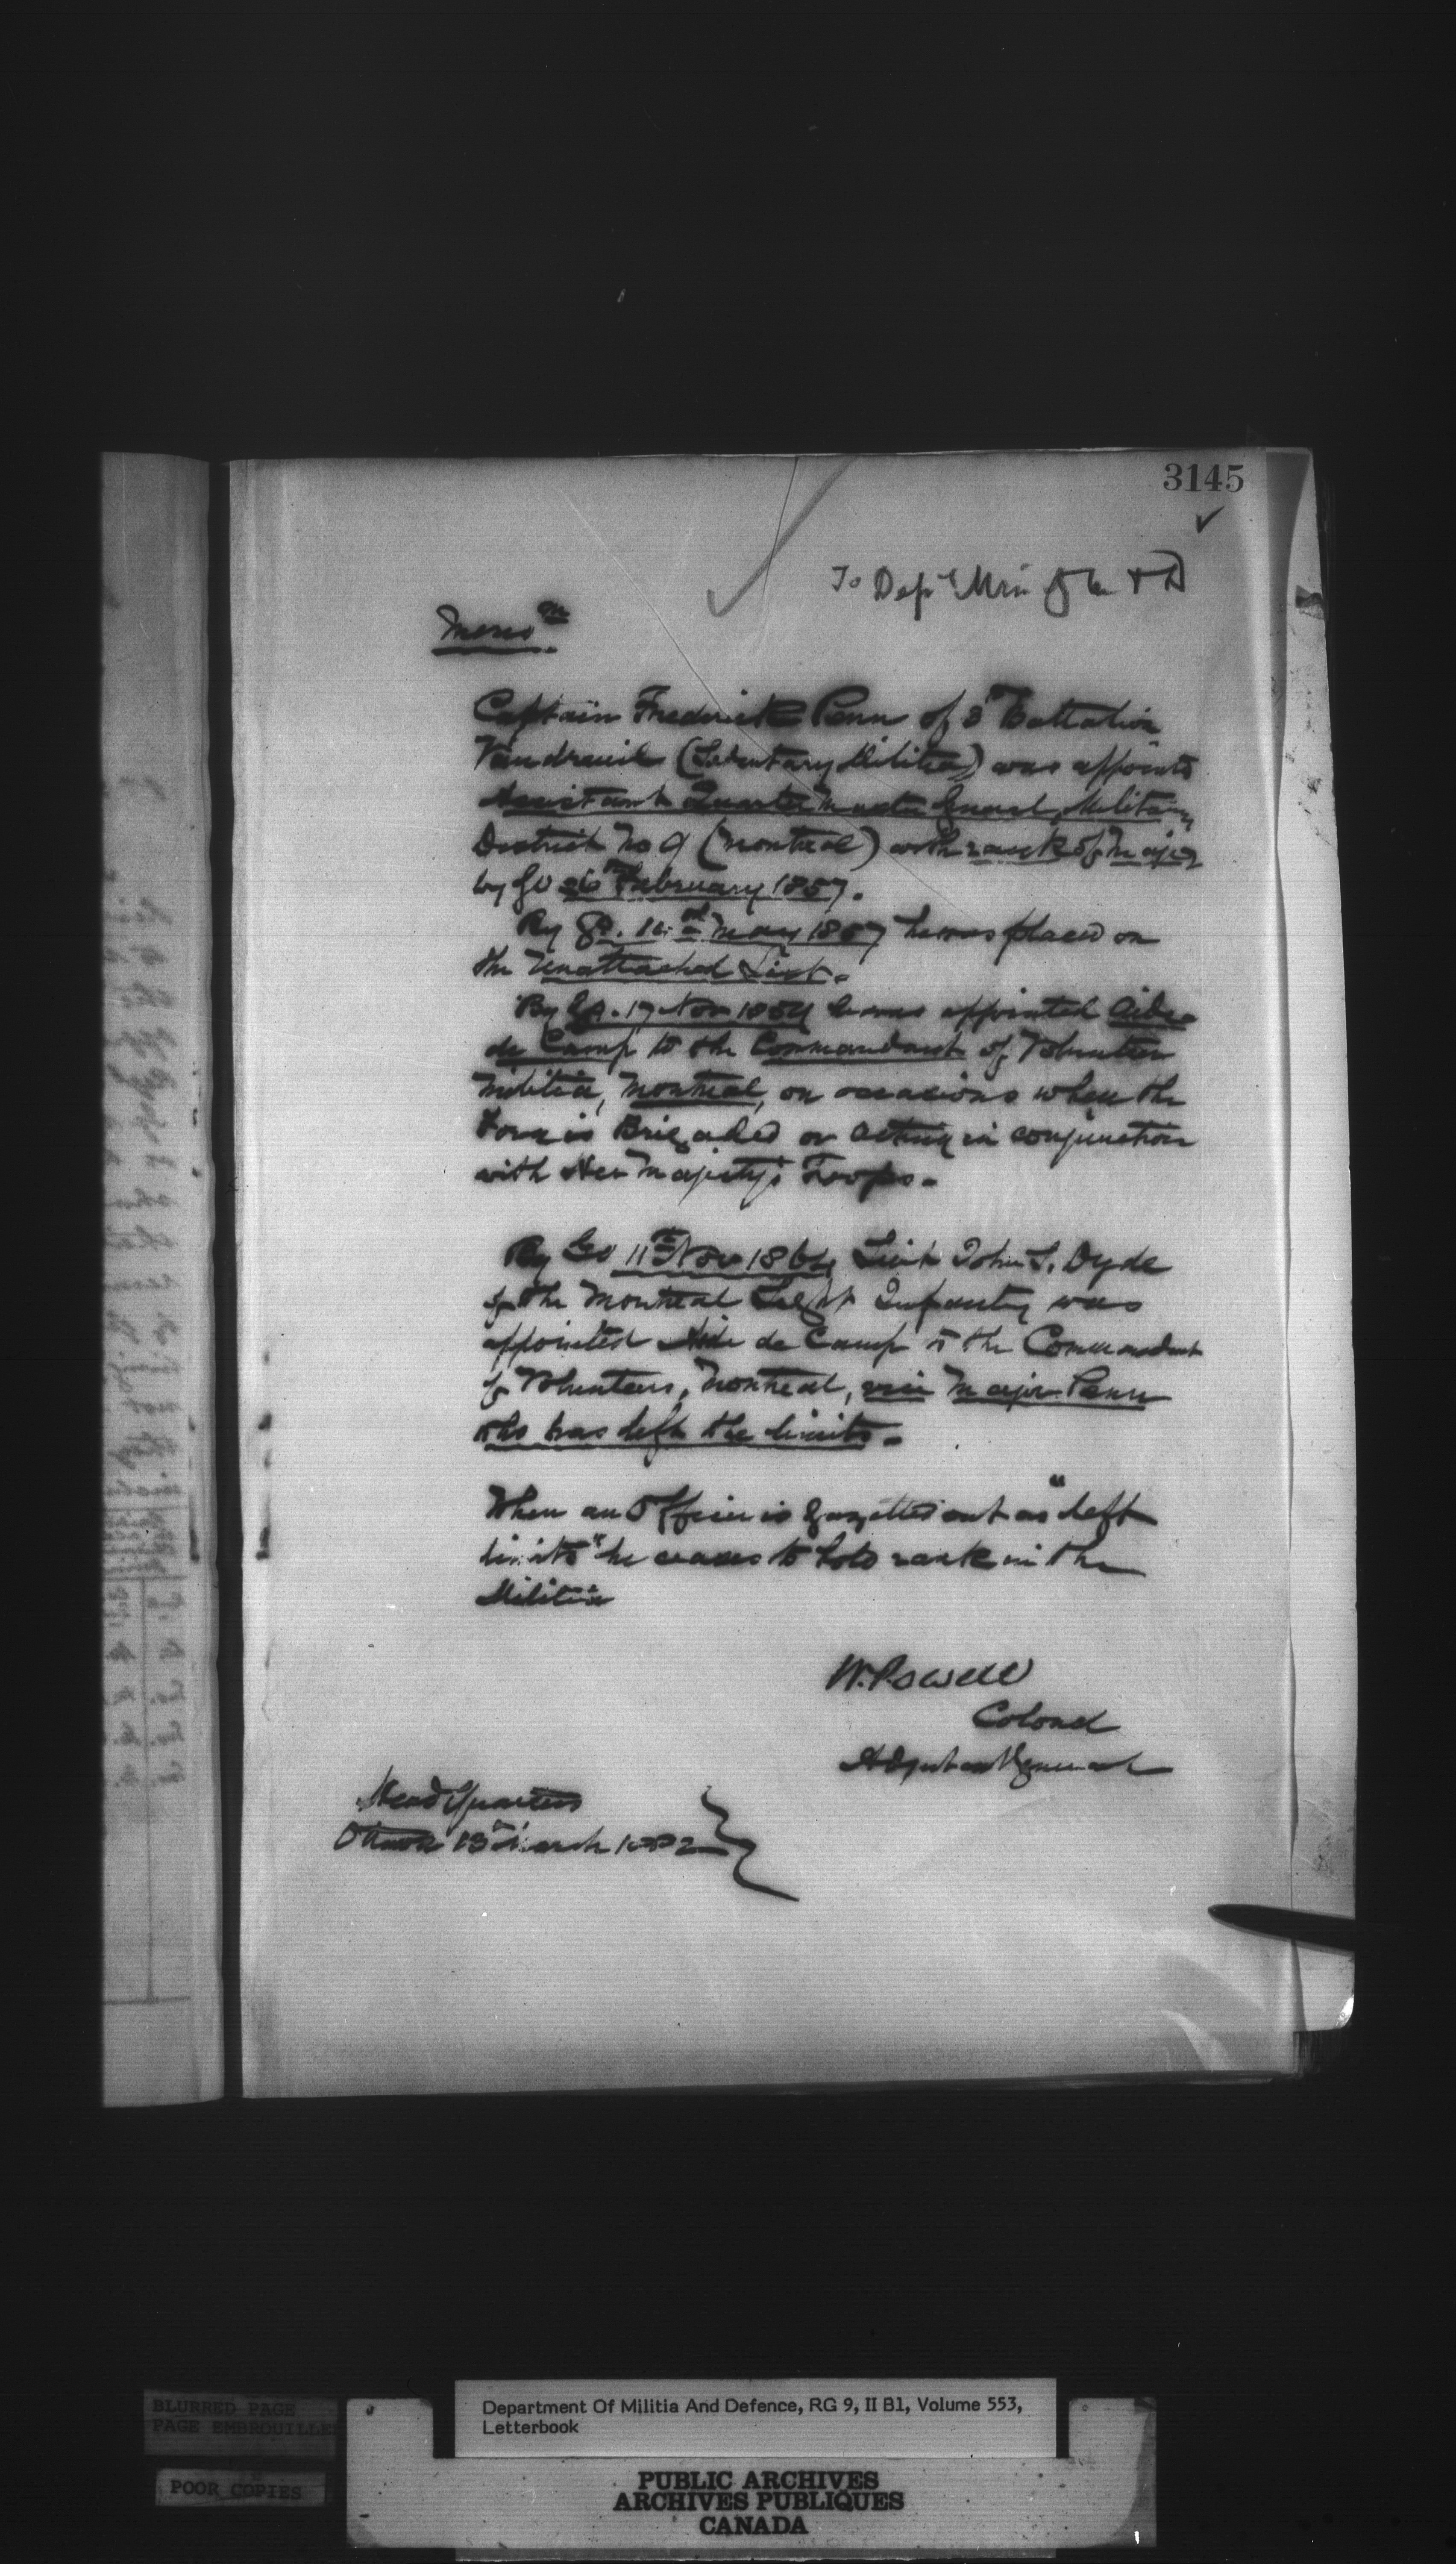 3145
To Dep Min of M & D
Memo m
Captain Frederick Penn of 3 Battalion
Vaudreuil (Sedentary Militia) was appointed
Assistant Quarter Master General, Military
District No 9 (Montreal) with rank of Major
by GO 26 February 1857.
By G.O. May 1857 he was placed on
the Unattached List.
By G.O. 17 Nov he was appointed Aide
de Camp to the Commandant of Volunteer
Militia, Montreal, on occasions when the
Force is Brigaded or acting in conjunction
with Her Majesty's Troops.
By GO 11th Nov 1864 Lieut John S. Dyde
of the Montreal Light Infantry was
appointed Aide de Camp to the Commandant
of Volunteers, Montreal, vice Major Penn
who has left the limits.
When an Officer is gazetted out as "left
limits" he ceases to hold rank in the
Militia
W. Powell
Colonel
Adjutant General
Head Quarters
Ottawa 13 March 1882
BLURRED PAGE
PAGE EMBROUILLEE
POOR COPIES
Department Of Militia And Defence, RG 9, II B1, Volume 553,
Letterbook
PUBLIC ARCHIVES
ARCHIVES PUBLIQUES
CANADA